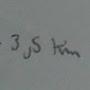 3,5 km